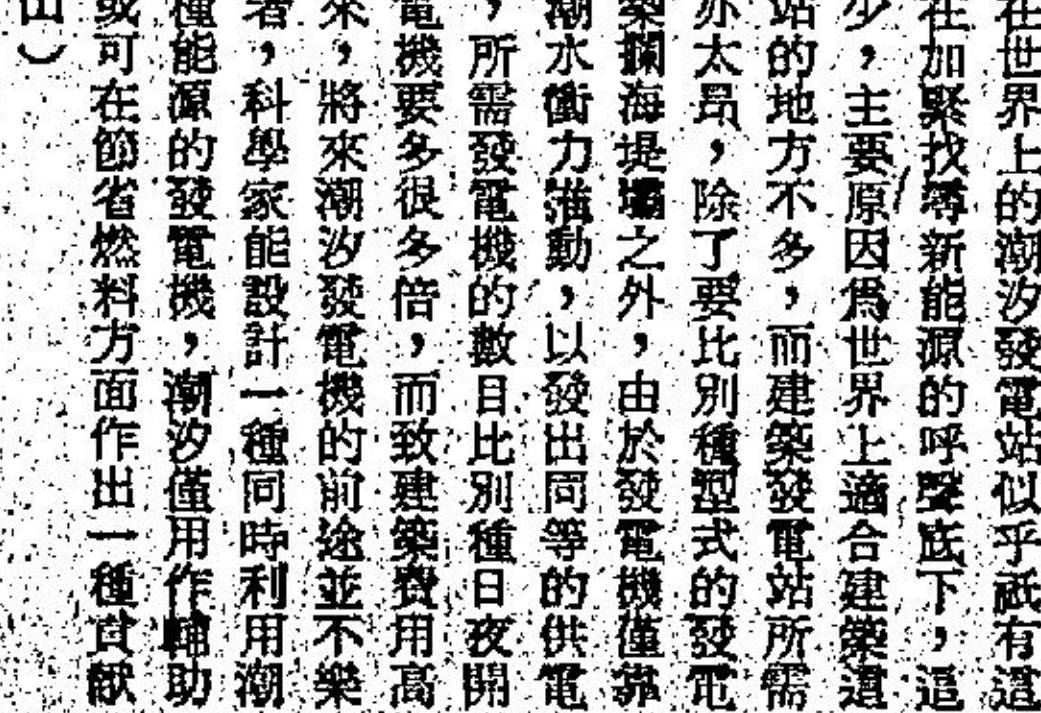 在世界上的潮汐發電站似乎祇有這
在加緊找尋新能源的呼聲底下，這
少，主要原因爲世界上適合建築這
站的地方不多，而建築發電站所需
亦太昂，除了要比別種型式的發電
築攔海堤壩之外，由於發電機僅靠
潮水衝力推動，以發出同等的供電
，所需發電機的數目比別種日夜開
電機要多很多倍，而致建築費用高
來，將來潮汐發電機的前途並不樂
者，科學家能設計一種同時利用潮
種能源的發電機，潮汐僅用作輔助
或可在節省燃料方面作出一種貢獻